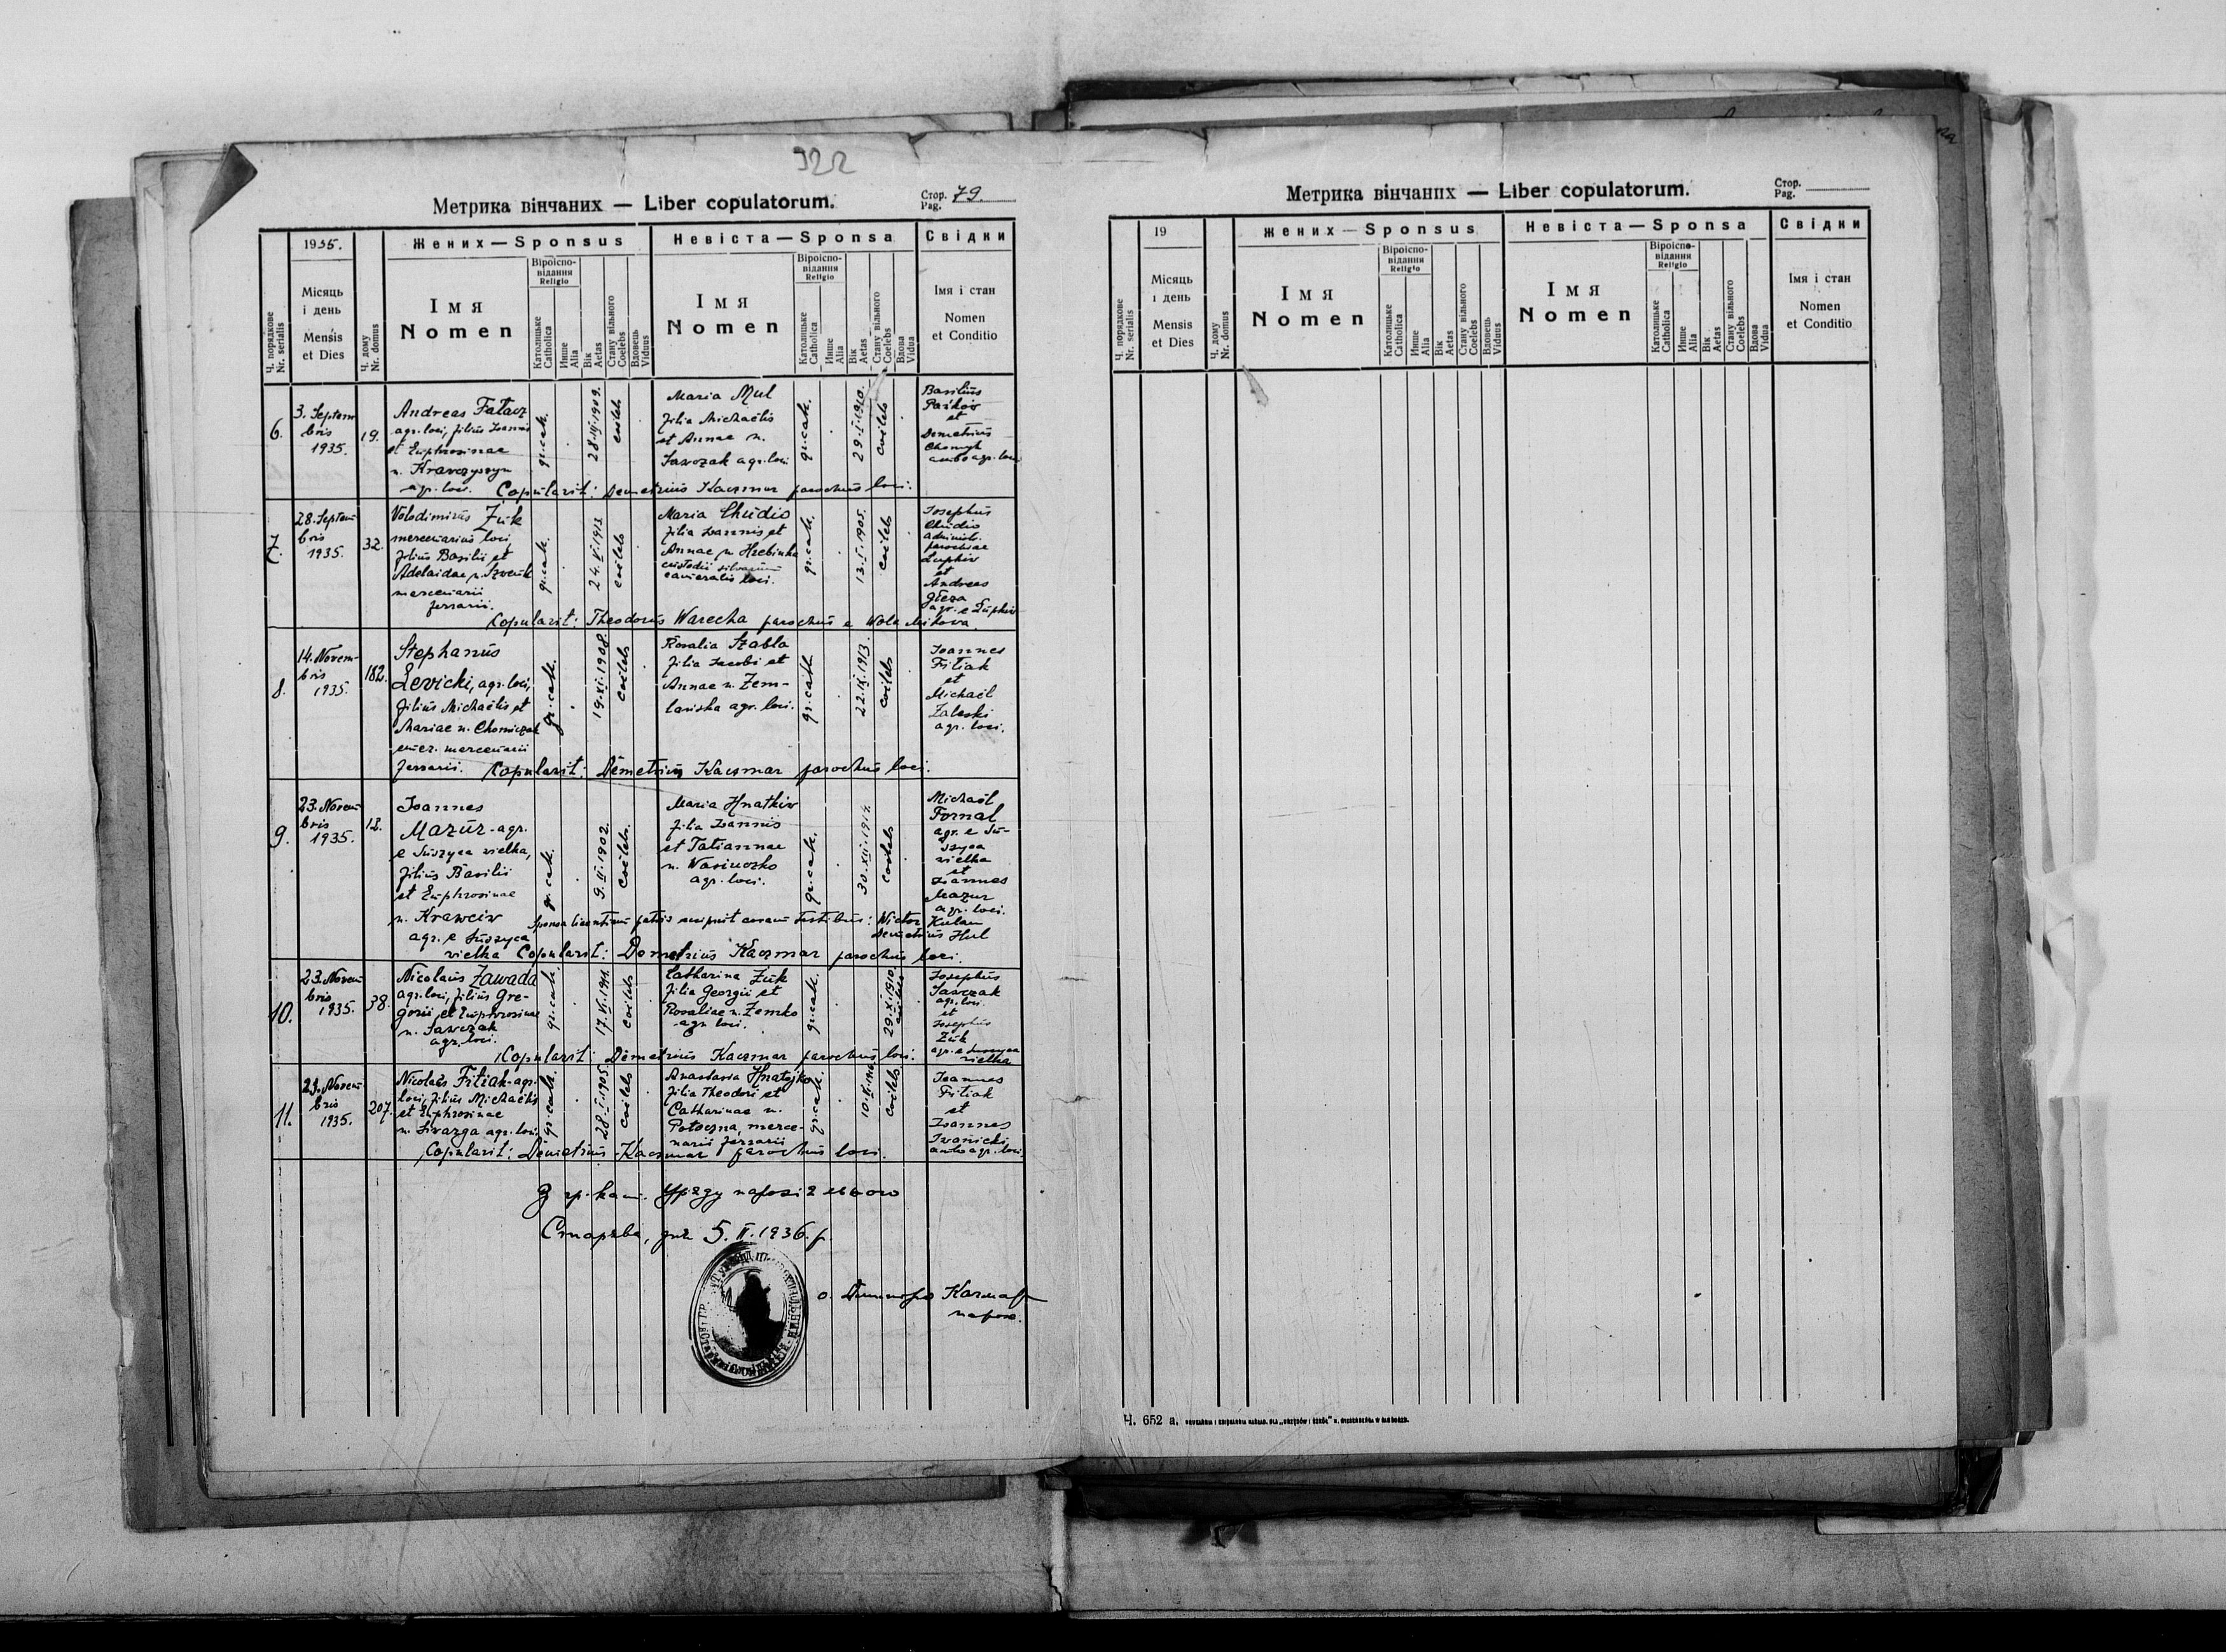 922
Метрика вінчаних — Liber copulatorum.
Стор.
Pag. 79.
Ч. порядкове
Nr. serialis
1935.
Місяць
і день
Mensis
et Dies
Ч. дому
Nr. domus
Жених — Sponsus
Імя
Nomen
Віроіспо-
відання
Religio
Католицьке
Catholica
Инше
Alia
Вік
Aetas
Стану вільного
Coelebs
Вдовець
Viduus
Невіста — Sponsa
Імя
Nomen
Віроіспо-
відання
Religio
Католицьке
Catholica
Инше
Alia
Вік
Aetas
Стану вільного
Coelebs
Вдова
Vidua
Свідки
Імя і стан
Nomen
et Conditio
6.
3. Septem
bris
1935.
19.
Andreas Fatacz
agr. loci, filius Ioannis
et Euphrosinae
n. Krawczyszyn
agr. loci.
gr. cat.
28.III.1909.
coelebs
Maria Mul
filia Michaëlis
et Annae n.
Sawczak agr. loci
gr. cath.
29.I.1910.
coelebs
Basilius
Paśkiv
et
Demetrius
Chomyk
ambo agr. loci
Copulavit: Demetrius Kaczmar parochus loci.
7.
28. Septem
bris
1935.
32.
Volodimirus Żuk
mercenarius loci,
filius Basilii et
Adelaidae n. Szweik
mercenarii
ferrarii.
gr. cath.
24.V.1913
coelebs
Maria Chudio
filia Ioannis et
Annae n. Hrebinka
custodis silvarum
cameralis loci.
gr. cath.
13.I.1905.
coelebs
Iosephus
Chudio
administr.
parochiae
Lupkiv
et
Andreas
Głeza
agr. e Lupkiv
Copulavit: Theodorus Warecha parochus e Wola Mihova.
8.
14. Novem-
bris
1935.
182.
Stephanus
Levicki, agr. loci,
filius Michaëlis et
Mariae n. Chomiczak
emer. mercenarii
ferrarii.
gr. cath.
19.XI.1908.
coelebs
Rosalia Szabla
filia Iacobi et
Annae n. Zem-
lariska agr. loci.
gr. cath.
22.IX.1913.
coelebs
Ioannes
Fitiak
et
Michaël
Zaleski
agr. loci.
Copulavit: Demetrius Kaczmar parochus loci.
9.
23. Novem
bris
1935.
12.
Ioannes
Mazur - agr.
e Suszyca wielka,
filius Basilii
et Euphrosinae
n. Krawciw
agr. e Suszyca
wielka
gr. cath.
9.II.1902.
coelebs.
Maria Hnatkiw
filia Ioannis
et Tatiannae
n. Wasiuczko
agr. loci.
gr. cath.
30.XII.1914.
coelebs
Michaël
Fornal
agr. e Su-
szyca
wielka
et
Ioannes
Mazur
agr. loci.
Sponsa licentiam patris accipuit coram testibus: Wictor Kulan
Demetrius Hul
Copulavit: Demetrius Kaczmar parochus loci.
10.
23. Novem
bris
1935.
38.
Nicolaus Zawada
agr. loci, filius Gre-
gorii et Euphrosinae
n. Sawczak
agr. loci.
gr. cath.
17.VI.1911.
coelebs
Catharina Żuk
filia Georgii et
Rosaliae n. Zemko
agr. loci.
gr. cath.
29.X.1910.
coelebs
Iosephus
Sawczak
agr. loci.
et
Iosephus
Żuk
agr. e Suszyca
wielka
Copulavit: Demetrius Kaczmar parochus loci.
11.
24. Novem
bris
1935.
207.
Nicolaus Fitiak - agr.
loci, filius Michaëlis
et Euphrosinae
n. Szwarga agr. loci
gr. cath.
28.I.1905.
coelebs
Anastasia Hnatejko
filia Theodori et
Catharinae n.
Potoczna, merce-
narii ferrarii
gr. cath.
coelebs
Ioannes
Fitiak
et
Ioannes
Iwanicki
ambo agr. loci
Copulavit: Demetrius Kaczmar parochus loci.
З гр. кат. Уряду парохіяльного
Старява, дня 5.II.1936. р.
о. Димитрій Качмар
парох.
Метрика вінчаних — Liber copulatorum.
Стор.
Pag.
Ч. порядкове
Nr. serialis
19
Місяць
і день
Mensis
et Dies
Ч. дому
Nr. domus
Жених — Sponsus
Імя
Nomen
Віроіспо-
відання
Religio
Католицьке
Catholica
Инше
Alia
Вік
Aetas
Стану вільного
Coelebs
Вдовець
Viduus
Невіста — Sponsa
Імя
Nomen
Віроіспо-
відання
Religio
Католицьке
Catholica
Инше
Alia
Вік
Aetas
Стану вільного
Coelebs
Вдова
Vidua
Свідки
Імя і стан
Nomen
et Conditio
Ч. 652 а.